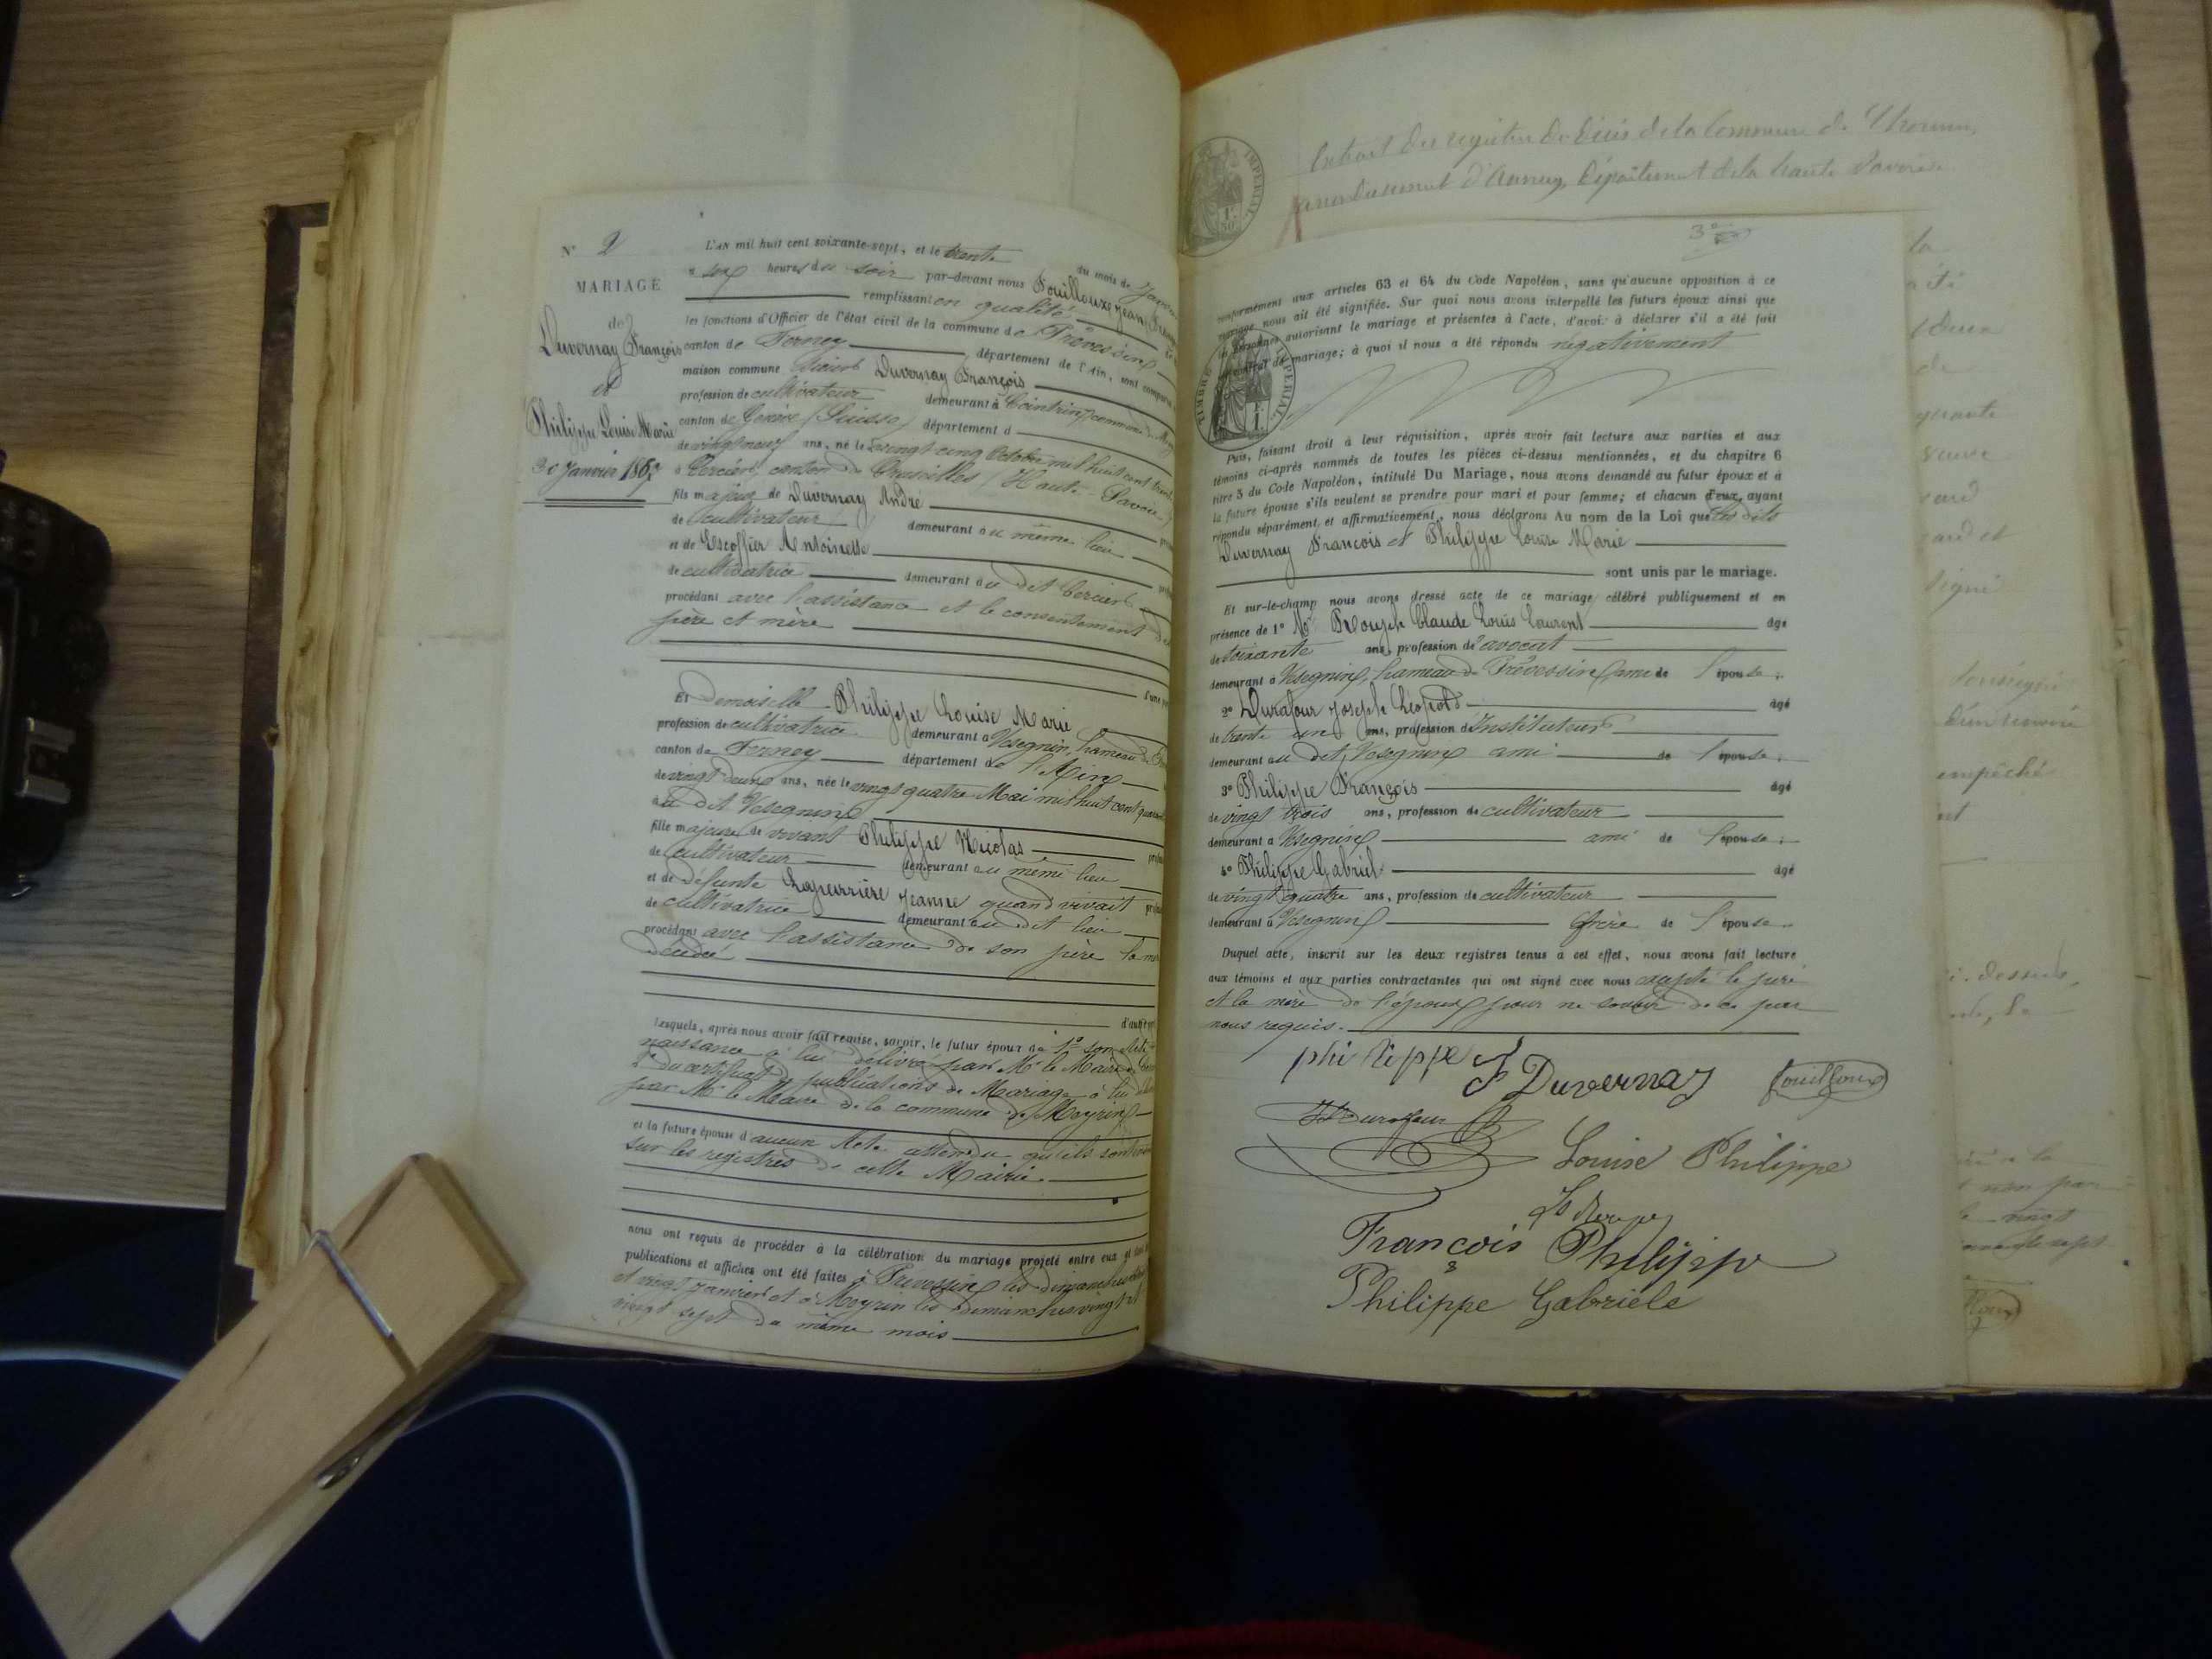 N° 2
MARIAGE
de
Duvernay François
et
Philippe Louise Marie
30 Janvier 1867
L'AN mil huit cent soixante-sept, et le trente du mois de
à six heures du soir par-devant nous Fouilloux Jean
remplissant en qualité
les fonctions d'Officier de l'état civil de la commune de Prévessin
canton de Ferney département de l'Ain, sont comparus
maison commune Duvernay François
profession de cultivateur demeurant à Cointrin commune de
canton de Genève (Suisse) département d
de vingt neuf ans, né le vingt cinq Octobre mil huit cent
à Cercier, canton de Cruseilles (Haute-Savoie)
fils majeur de Duvernay André
de cultivateur demeurant au même lieu
et de Escoffier Antoinette
de cultivatrice demeurant au dit Cercier
procédant avec l'assistance et le consentement de
père et mère
d'une
Et Demoiselle Philippe Louise Marie
profession de cultivatrice demeurant à Vesegnin, hameau de
canton de Ferney département de l'Ain
de vingt deux ans, née le vingt quatre Mai mil huit cent
au dit Vesegnin
fille majeure de vivant Philippe Nicolas
de cultivateur demeurant au même lieu
et de défunte Laperrière Jeanne quand vivait
de cultivatrice demeurant au dit lieu
procédant avec l'assistance de son père la
décédée
d'autre
Lesquels, après nous avoir fait remise, savoir, le futur époux de 1° son
naissance à lui délivré par Mr le Maire de
2° du certificat de publications de Mariage à lui
par Mr le Maire de la commune de Meyrin
et la future épouse d'aucun Acte attendu qu'ils sont
sur les registres de cette Mairie.
nous ont requis de procéder à la célébration du mariage projeté entre eux et
publications et affiches ont été faites à Prévessin les dimanches
et vingt janvier et à Meyrin les Dimanches vingt et
vingt sept du même mois
Extrait des registres de Décès de la Commune de
arrondissement d'Annecy, Département de la haute Savoie.
IMPERIAL
3e
conformément aux articles 63 et 64 du Code Napoléon, sans qu'aucune opposition à ce
mariage nous ait été signifiée. Sur quoi nous avons interpellé les futurs époux ainsi que
les personnes autorisant le mariage et présentes à l'acte, d'avoir à déclarer s'il a été fait
un contrat de mariage; à quoi il nous a été répondu négativement
TIMBRE IMPERIAL
Puis, faisant droit à leur réquisition, après avoir fait lecture aux parties et aux
témoins ci-après nommés de toutes les pièces ci-dessus mentionnées, et du chapitre 6
titre 5 du Code Napoléon, intitulé Du Mariage, nous avons demandé au futur époux et à
la future épouse s'ils veulent se prendre pour mari et pour femme; et chacun d'eux ayant
répondu séparément et affirmativement, nous déclarons Au nom de la Loi que les dits
Duvernay François et Philippe Louise Marie
sont unis par le mariage.
Et sur-le-champ nous avons dressé acte de ce mariage célébré publiquement et en
présence de 1° Mr Claude Louis Laurent âgé
de soixante ans, profession d'avocat
demeurant à Vesegnin, hameau de Prévessin, ami de l'épouse;
2° Durafour Joseph Léopold âgé
de trente un ans, profession d'Instituteur
demeurant au dit Vesegnin ami de l'épouse;
3° Philippe François âgé
de vingt trois ans, profession de cultivateur
demeurant à Vesegnin ami de l'épouse;
4° Philippe Gabriel âgé
de vingt quatre ans, profession de cultivateur
demeurant à Vesegnin frère de l'épouse.
Duquel acte, inscrit sur les deux registres tenus à cet effet, nous avons fait lecture
aux témoins et aux parties contractantes qui ont signé avec nous excepté le père
et la mère de l'époux pour ne savoir de ce par
nous requis.
philippe
F Duvernay
Fouilloux
Durafour
Louise Philippe
François Philippe
Philippe Gabriele